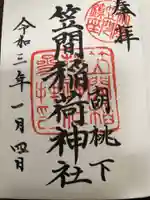 奉拝
胡桃下
笠間稲荷神社
令和三年一月四日